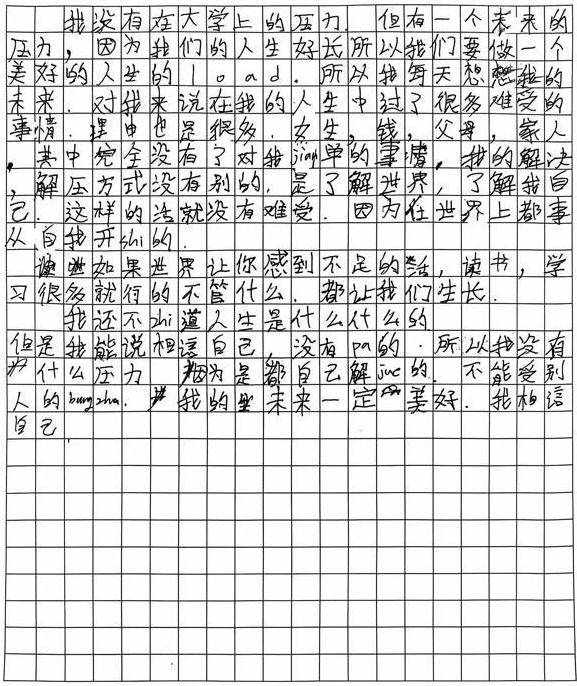 我没有在大学上的压力. 但有一个未来的
压力, 因为我们的人生好长所以我们要做一个
美好的人生的load. 所以我每天想想我的
未来. 对我来说在我的人生中过了很多难受的
事情. 理由也是很多. 女生, 钱, 父母, 家人
, 其中完全没有了对我jian单的事情, 我的解决
, 解压方式没有别的, 是了解世界, 了解我自
己. 这样的话就没有难受. 因为在世界上都事
从自我开shi的.
如果世界让你感到不足的话, 读书, 学
习很多就行的不管什么. 都让我们生长.
我还不zhi道人生是什么什么的
但是我能说相信自己, 没有pa的. 所以我没有
什么压力 因为是都自己解jue的. 不能受别
人的bangzhu. 我的未来一定美好. 我相信
自己.